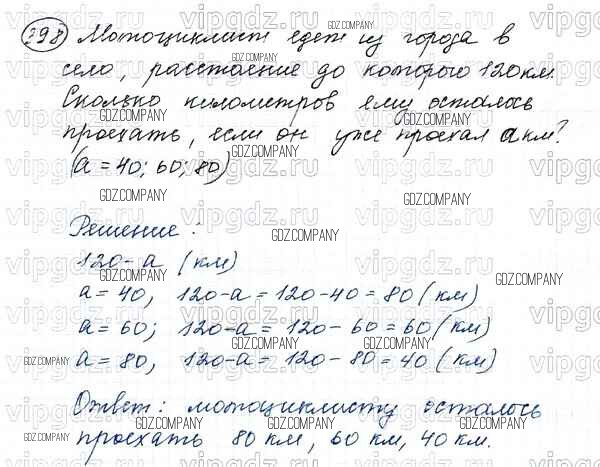 298 Мотоциклист едет из города в
село, расстояние до которого 120 км.
Сколько километров ему осталось
проехать, если он уже проехал a км?
(a = 40; 60; 80)
Решение:
120-a (км)
a = 40, 120-a = 120-40 = 80 (км)
a = 60; 120-a = 120-60 = 60 (км)
a = 80, 120-a = 120-80 = 40 (км)
Ответ: мотоциклисту осталось
проехать 80 км, 60 км, 40 км.
vipgdz.ru
GDZ.COMPANY